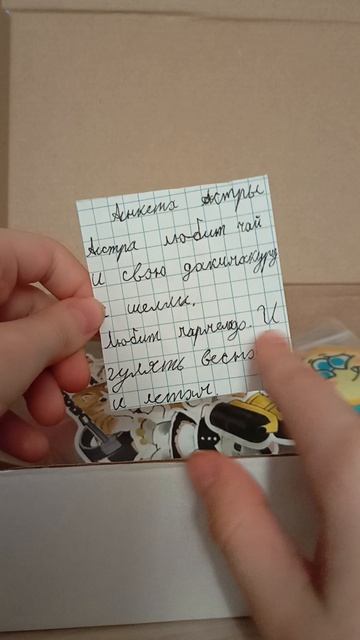 Анкета Астры
Астра любит чай
и свою дакимакуру
с шелли.
Любит чармандо. И
гулять весно
и летом